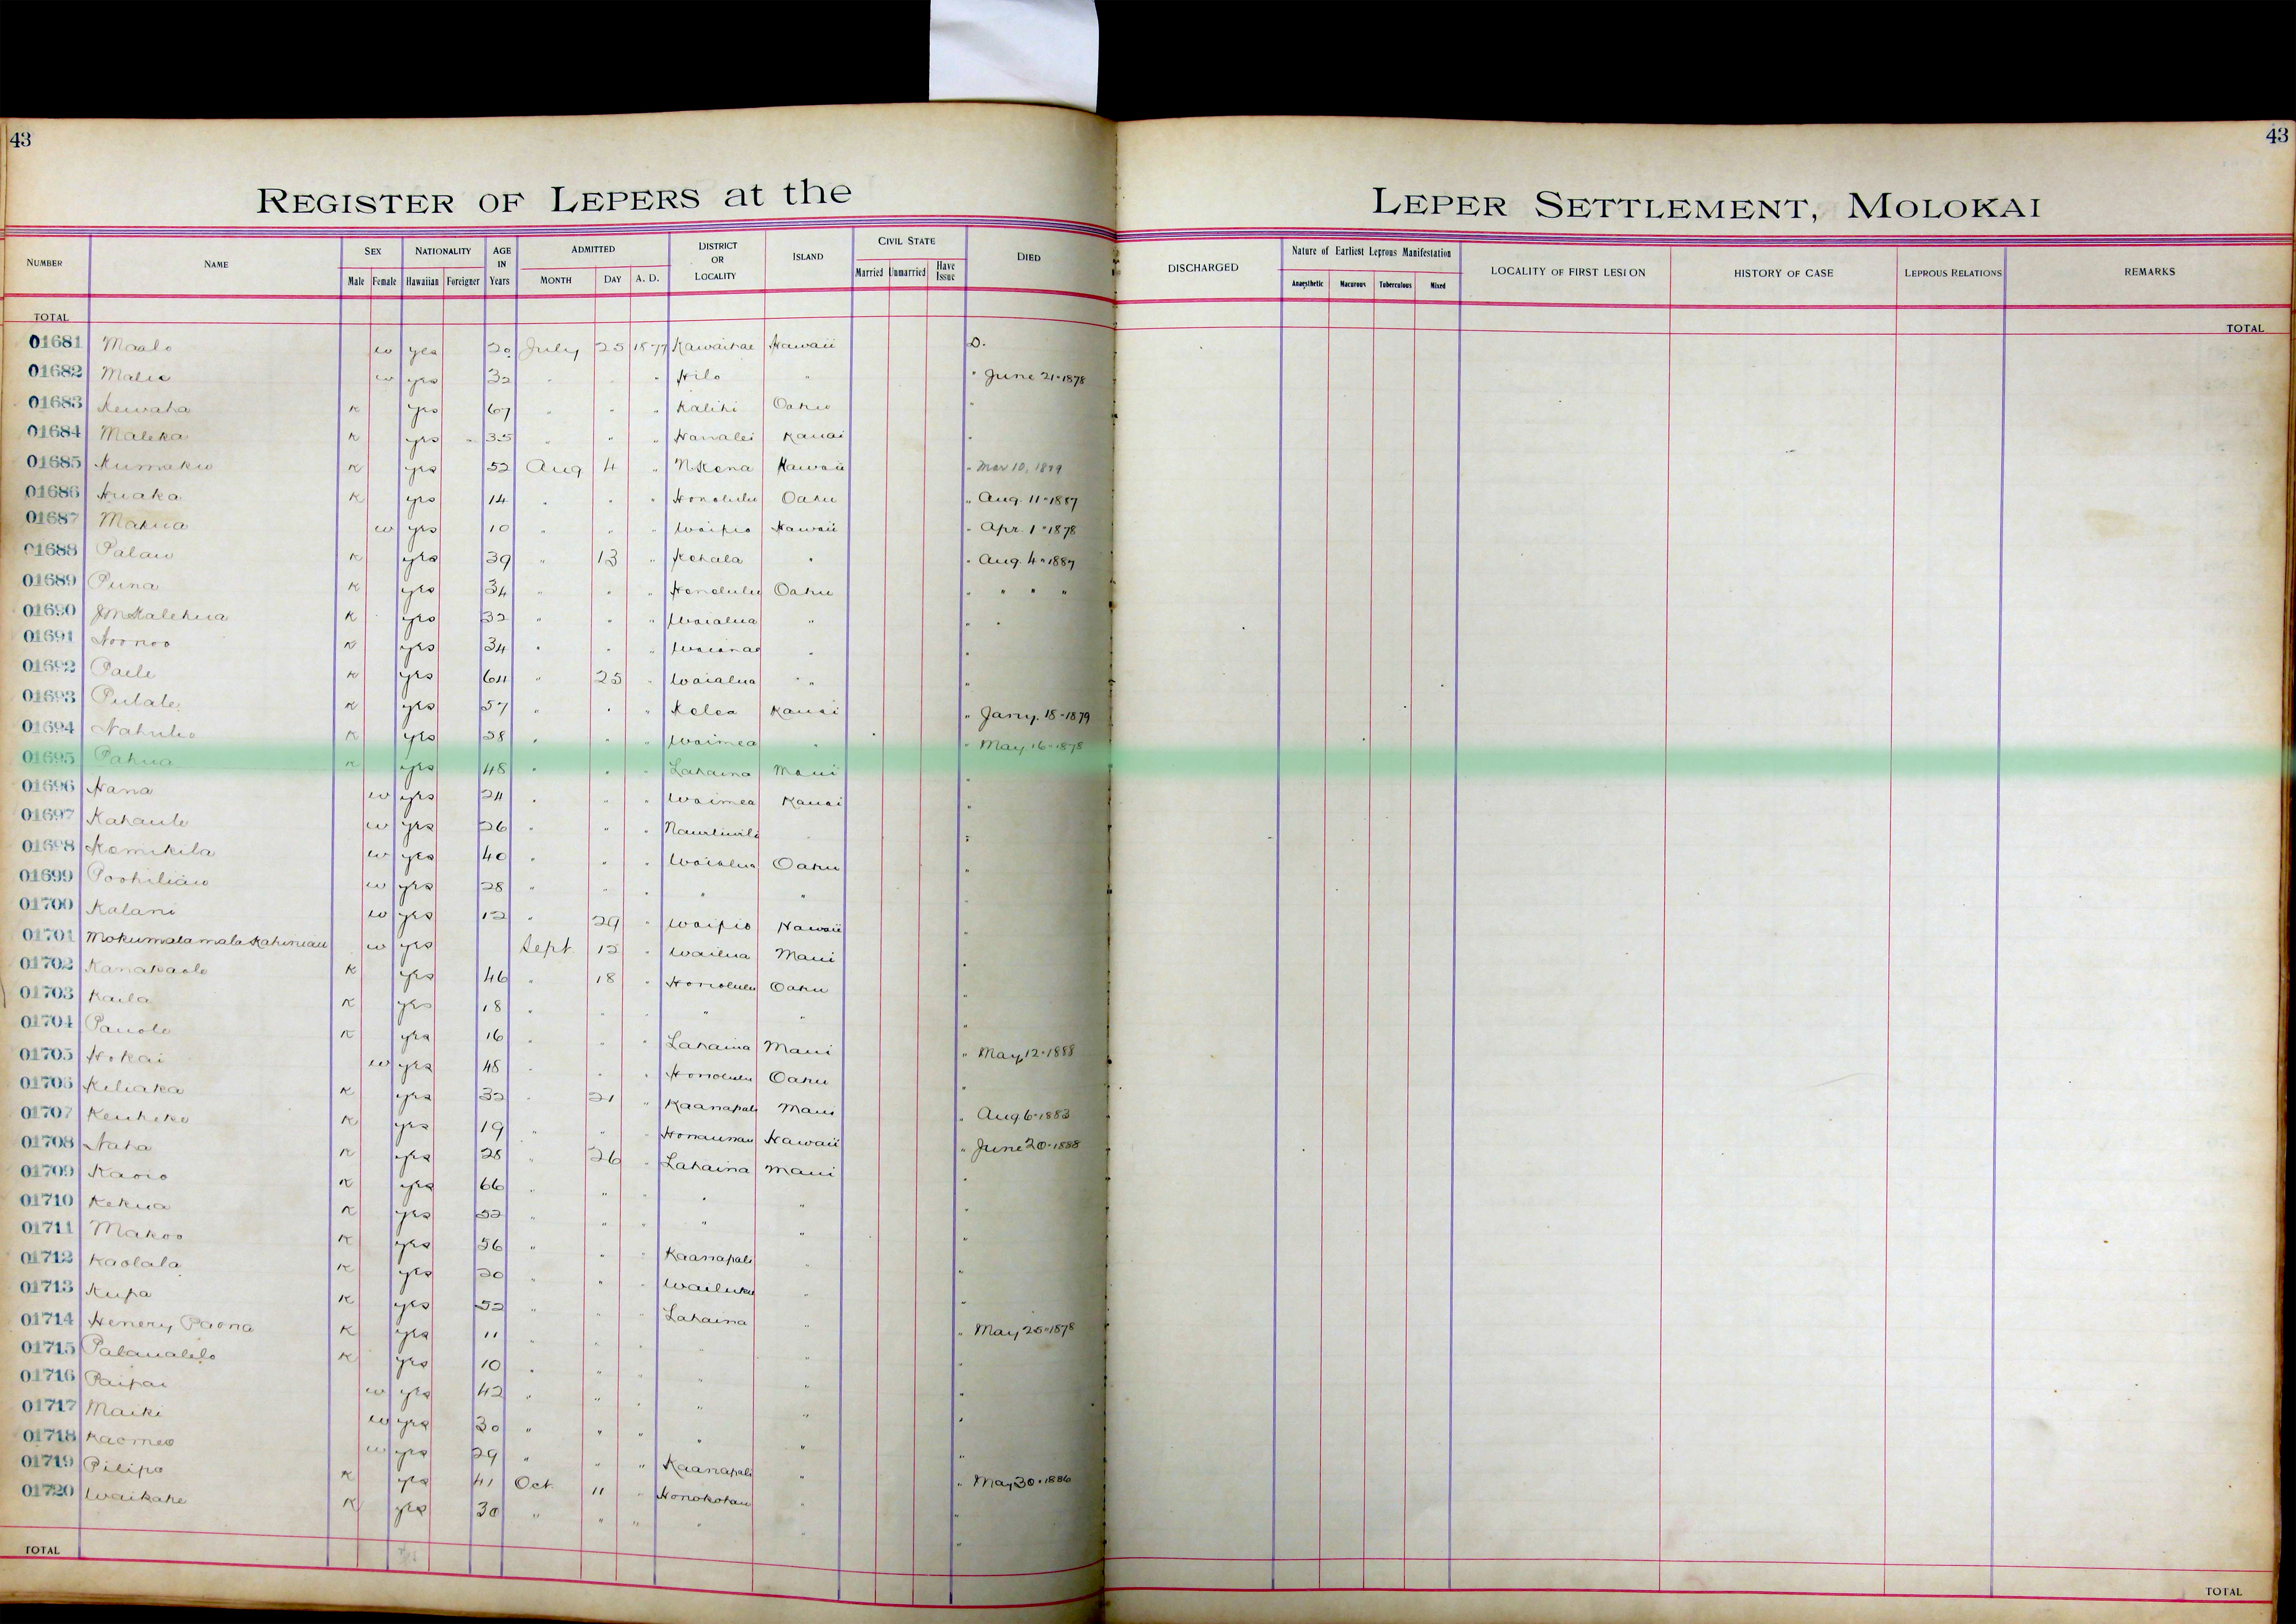 43 43
REGISTER OF LEPERS at the LEPER SETTLEMENT, MOLOKAI
NUMBER NAME SEX Male Female NATIONALITY Hawaiian Foreigner AGE IN Years ADMITTED MONTH DAY A. D. DISTRICT OR LOCALITY ISLAND CIVIL STATE Married Unmarried Have Issue DIED DISCHARGED Nature of Earliest Leprous Manifestation Anaesthetic Macurous Tuberculous Mixed LOCALITY OF FIRST LESION HISTORY OF CASE LEPROUS RELATIONS REMARKS
TOTAL TOTAL
01681 Maalo w yes 20 July 25 1877 Kawaihae Hawaii D.
01682 w yes 32 " " " Hilo " " June 21-1878
01683 Kewaha K yes 67 " " " Kalihi Oahu "
01684 Maleka K yes 35 " " " Hanalei Kauai "
01685 Kumaku K yes 52 Aug 4 " N Kona Hawaii " Mar 10, 1879
01686 Huaka K yes 14 " " " Honolulu Oahu " Aug. 11-1887
01687 Mahua w yes 10 " " " Waipio Hawaii " Apr. 1-1878
01688 Palau K yes 39 " 13 " Kohala " " Aug. 4-1887
01689 Puna K yes 34 " " " Honolulu Oahu " " " "
01690 K yes 32 " " " Waialua " " "
01691 Noonoo K yes 34 " " " Waianae " "
01692 K yes 64 " 25 " Waialua " "
01693 K yes 57 " " " Kolea Kauai " Jany. 18-1879
01694 K yes 28 " " " Waimea " " May 16-1878
01695 Pahua K yes 48 " " " Lahaina Maui "
01696 Hana w yes 24 " " " Waimea Kauai "
01697 Kahaule w yes 26 " " " "
01698 Kamikila w yes 40 " " " Waialua Oahu "
01699 Poohiliau w yes 28 " " " " " "
01700 Kalani w yes 12 " 29 " Waipio Hawaii "
01701 Mokumalamala w yes Sept 12 " Wailua Maui "
01702 Kanakaole K yes 46 " 18 " Honolulu Oahu "
01703 Kaila K yes 18 " " " " " "
01704 Pauole K yes 16 " " " Lahaina Maui " May 12-1888
01705 Hokai w yes 48 " " " Honolulu Oahu "
01706 Keliaka K yes 32 " 21 " Kaanapali Maui " Aug 6-1883
01707 K yes 19 " " " Honaunau Hawaii " June 20-1888
01708 Naha K yes 28 " 26 " Lahaina Maui "
01709 K yes 66 " " " " " "
01710 Kekua K yes 52 " " " " " "
01711 Makoo K yes 56 " " " Kaanapali " "
01712 Kaolala K yes 20 " " " Wailuku " "
01713 Kupa K yes 52 " " " Lahaina " "
01714 Henery Paona K yes 11 " " " " " " May 25-1878
01715 Palaualelo K yes 10 " " " " " "
01716 Paipai w yes 42 " " " " " "
01717 Maiki w yes 30 " " " " " "
01718 Kaomeo w yes 29 " " " Kaanapali " "
01719 Pilipo K yes 41 Oct 11 " Honokohau " " May 30-1886
01720 Waikahe K yes 30 " " " " " "
TOTAL TOTAL